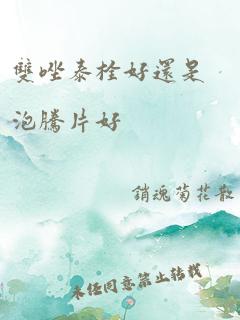 雙唑泰栓好還是
泡騰片好
銷魂菊花散
未经同意禁止转载